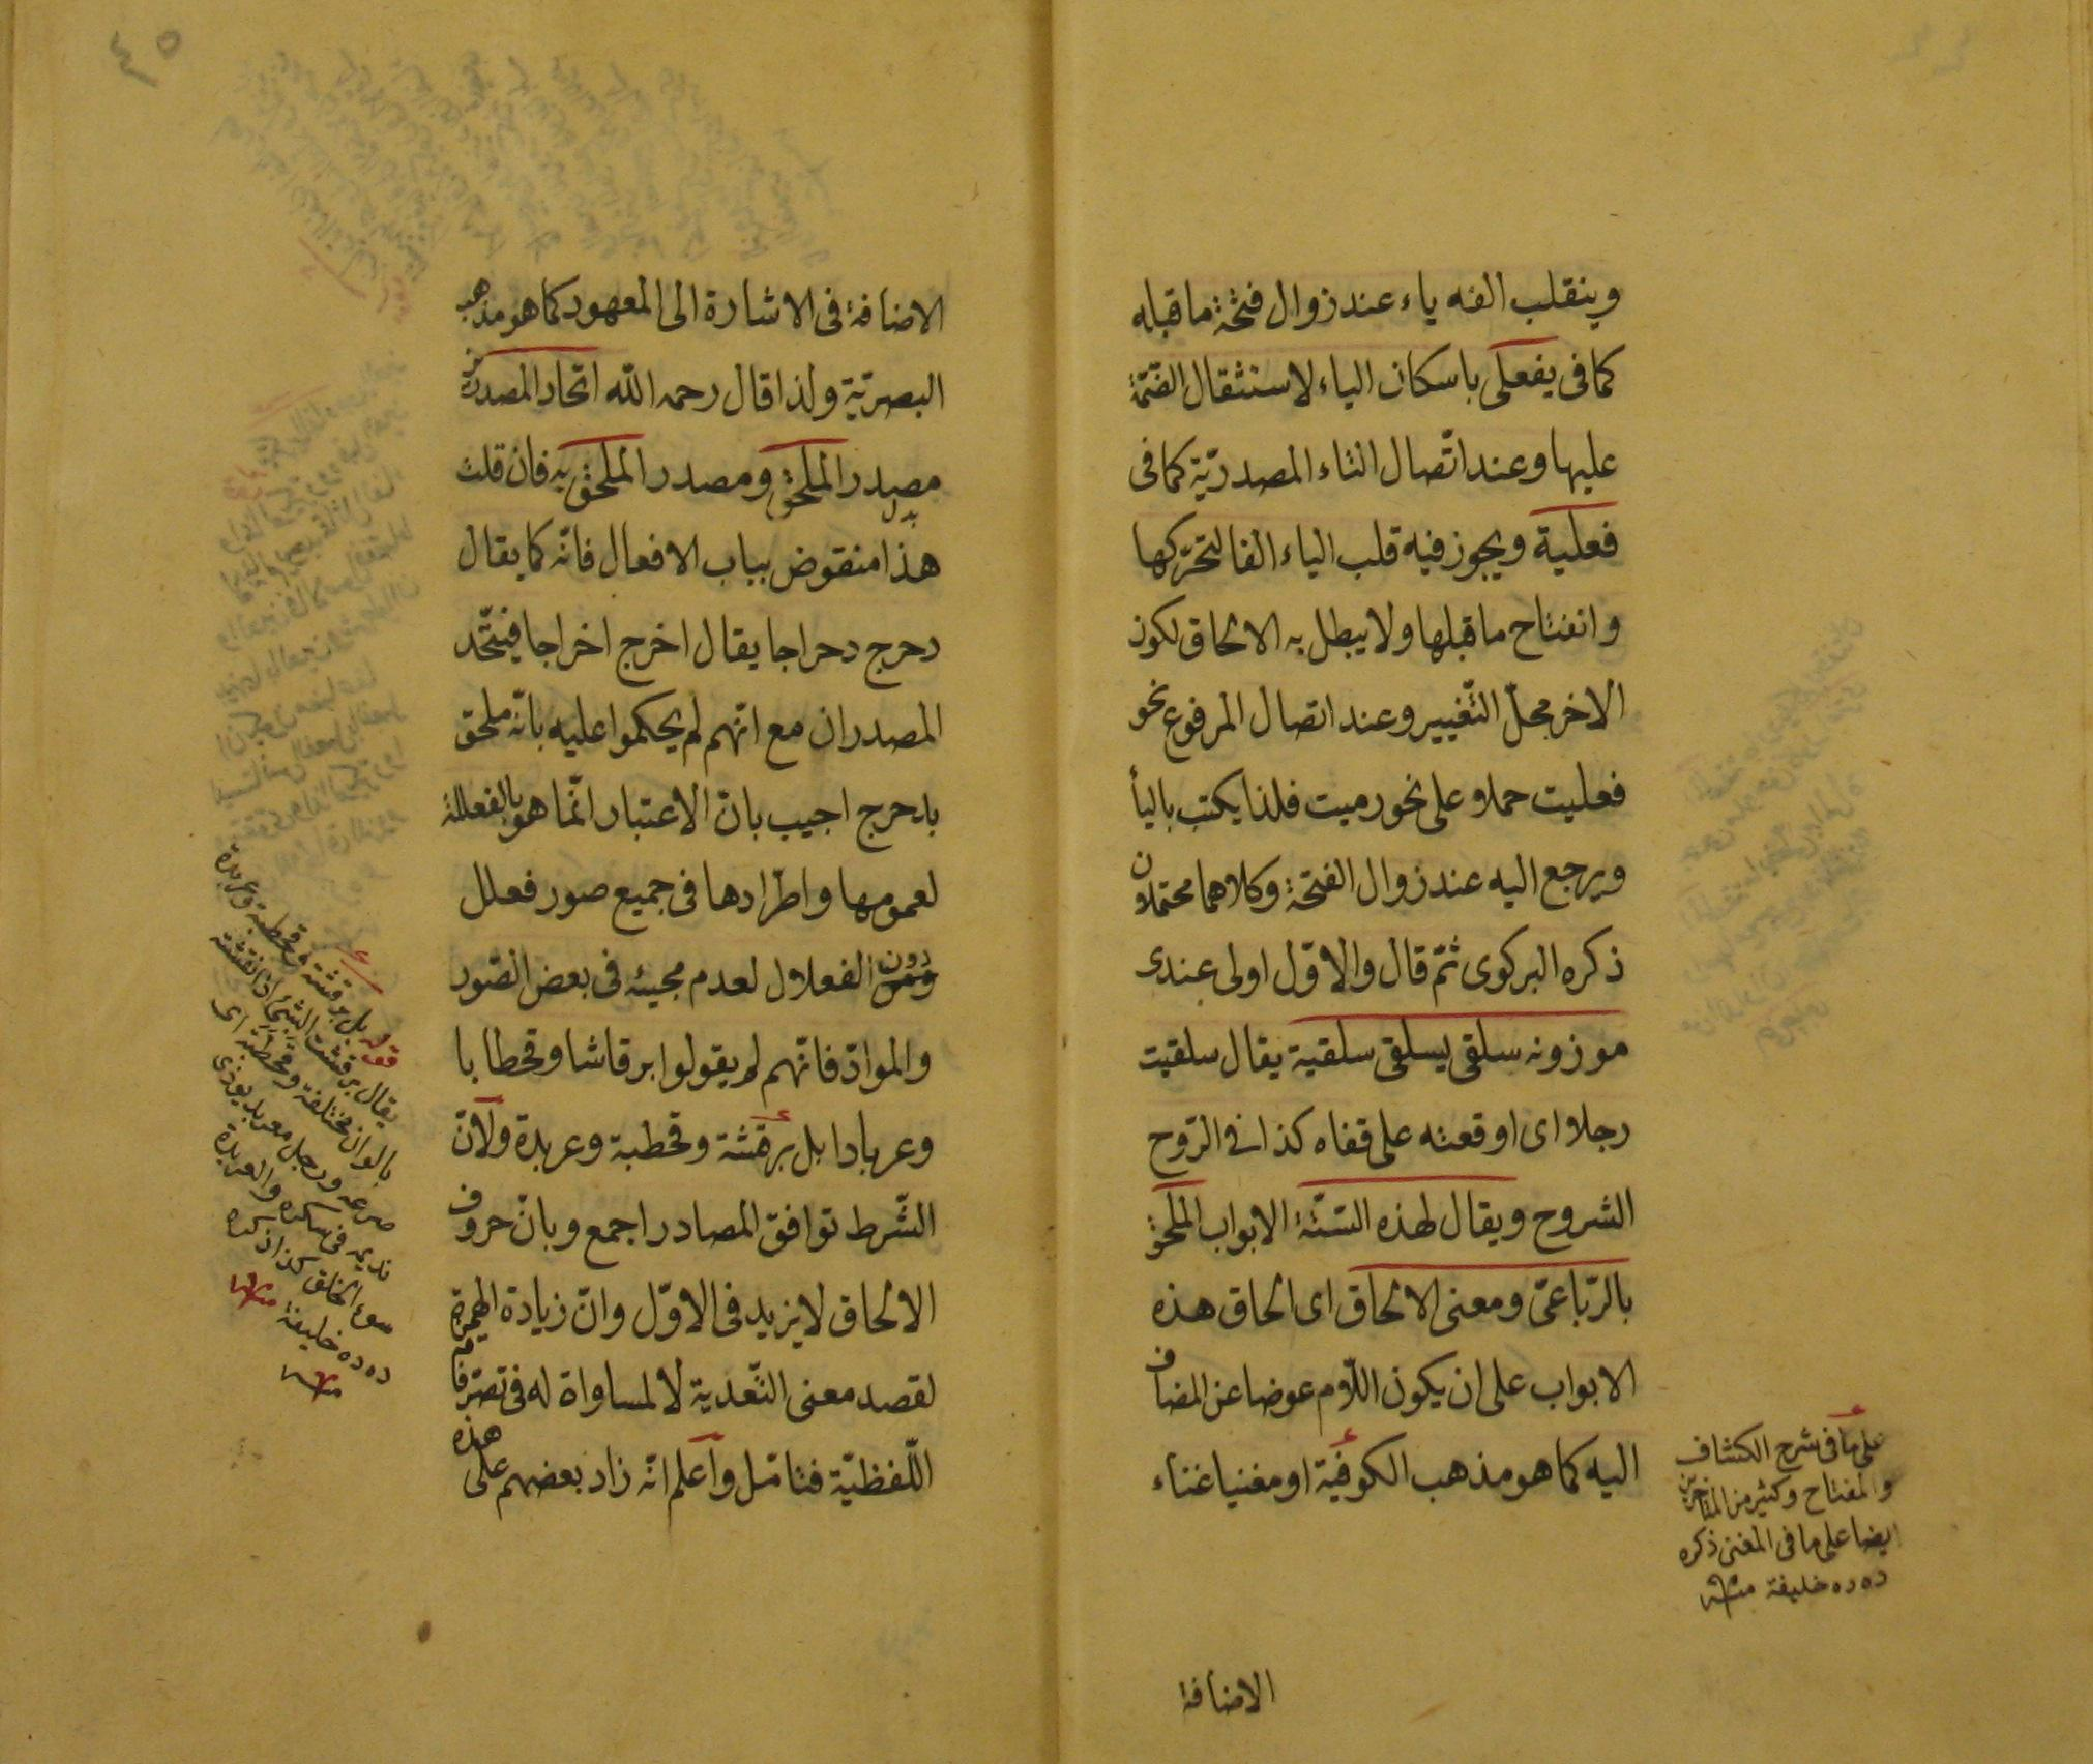 وينقلب الفه ياء عند زوال فتحة ما قبله
كما فى يفعلى باسكان الياء لاستثقال الضّمّة
عليها وعند اتّصال التاء المصدريّة كما فى
فعلية ويجوز فيه قلب الياء الفا لتحرّكها
وانفتاح ما قبلها ولا يبطل به الالحاق لكون
الاخر محلّ التّغيير وعند اتصال المرفوع نحو
فعليت حملا على نحو رميت فلذا يكتب باليأ
ويرجع اليه عند زوال الفتحة وكلاهما محتملان
ذكره البركوى ثمّ قال والاوّل اولى عندى
موزونه سلقى يسلقى سلقية يقال سلقيت
رجلا اى اوقعته على قفاه كذا فى الرّوح
الشروح ويقال لهذه السّتّة الابواب الملحق
بالرّباعىّ ومعنى الالحاق اى الحاق هذه
الابواب على ان يكون اللّام عوضا عن المضاف
اليه كما هو مذهب الكوفيّة او مغنيا غناء
على ما فى شرح الكشاف
والمفتاح وكثير من المتأخرين
ايضا على ما فى المغنى ذكره
ده ده خليفة منه
الاضافة
٤٥
الاضافة فى الاشارة الى المعهود كما هو مذهب
البصريّة ولذا قال رحمه الله اتّحاد المصدرين
مصدر الملحق ومصدر الملحق به فان قلت
هذا منقوض بباب الافعال فانّه كما يقال
دحرج دحراجا يقال اخرج اخراجا فيتّحد
المصدران مع انّهم لم يحكموا عليه بانّه ملحق
بدحرج اجيب بانّ الاعتبار انّما هو بالفعللة
لعمومها واطّرادها فى جميع صور فعلل
دون الفعلال لعدم مجيئه فى بعض الصّور
والموادّ فانّهم لم يقولوا برقاشا وقحطابا
وعربادا بل برقشة وقحطبة وعربدة ولانّ
الشّرط توافق المصادر اجمع وبانّ حروف
الالحاق لا يزيد فى الاوّل وانّ زيادة الهمزة
لقصد معنى التّعدية لا لمساواة له فى تصرّفاته
اللّفظيّة فتامّل واعلم انّه زاد بعضهم على هذه
قوله بل برقشة وقحطبة وعربدة
يقال برقشت الشىء اذا نقشته
بالوان مختلفة وقحطبه اى
صرعه ورجل معربد يؤذى
نديمه فى سكره والعربدة
سوء الخلق كذا ذكره
ده ده خليفة منه